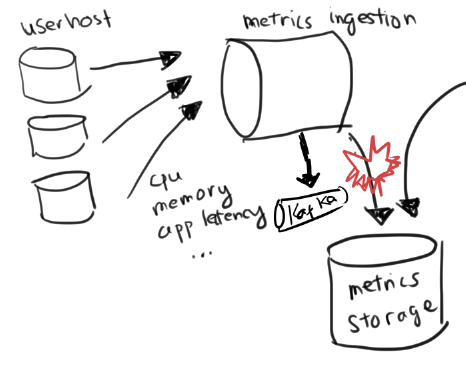 userhost
metrics ingestion
cpu
memory
app latency
...
Kafka
metrics
storage